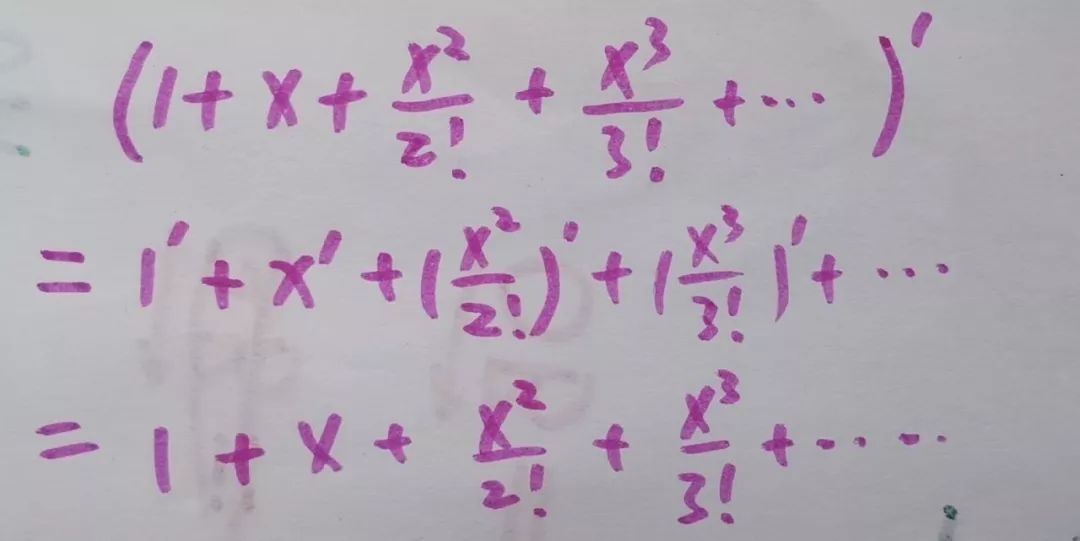 (1 + x + x²/2! + x³/3! + ⋯)′
= 1′ + x′ + (x²/2!)′ + (x³/3!)′ + ⋯
= 1 + x + x²/2! + x³/3! + ⋯⋯